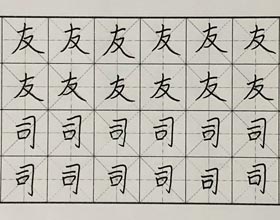 友友友友友友
友友友友友友
司司司司司司
司司司司司司